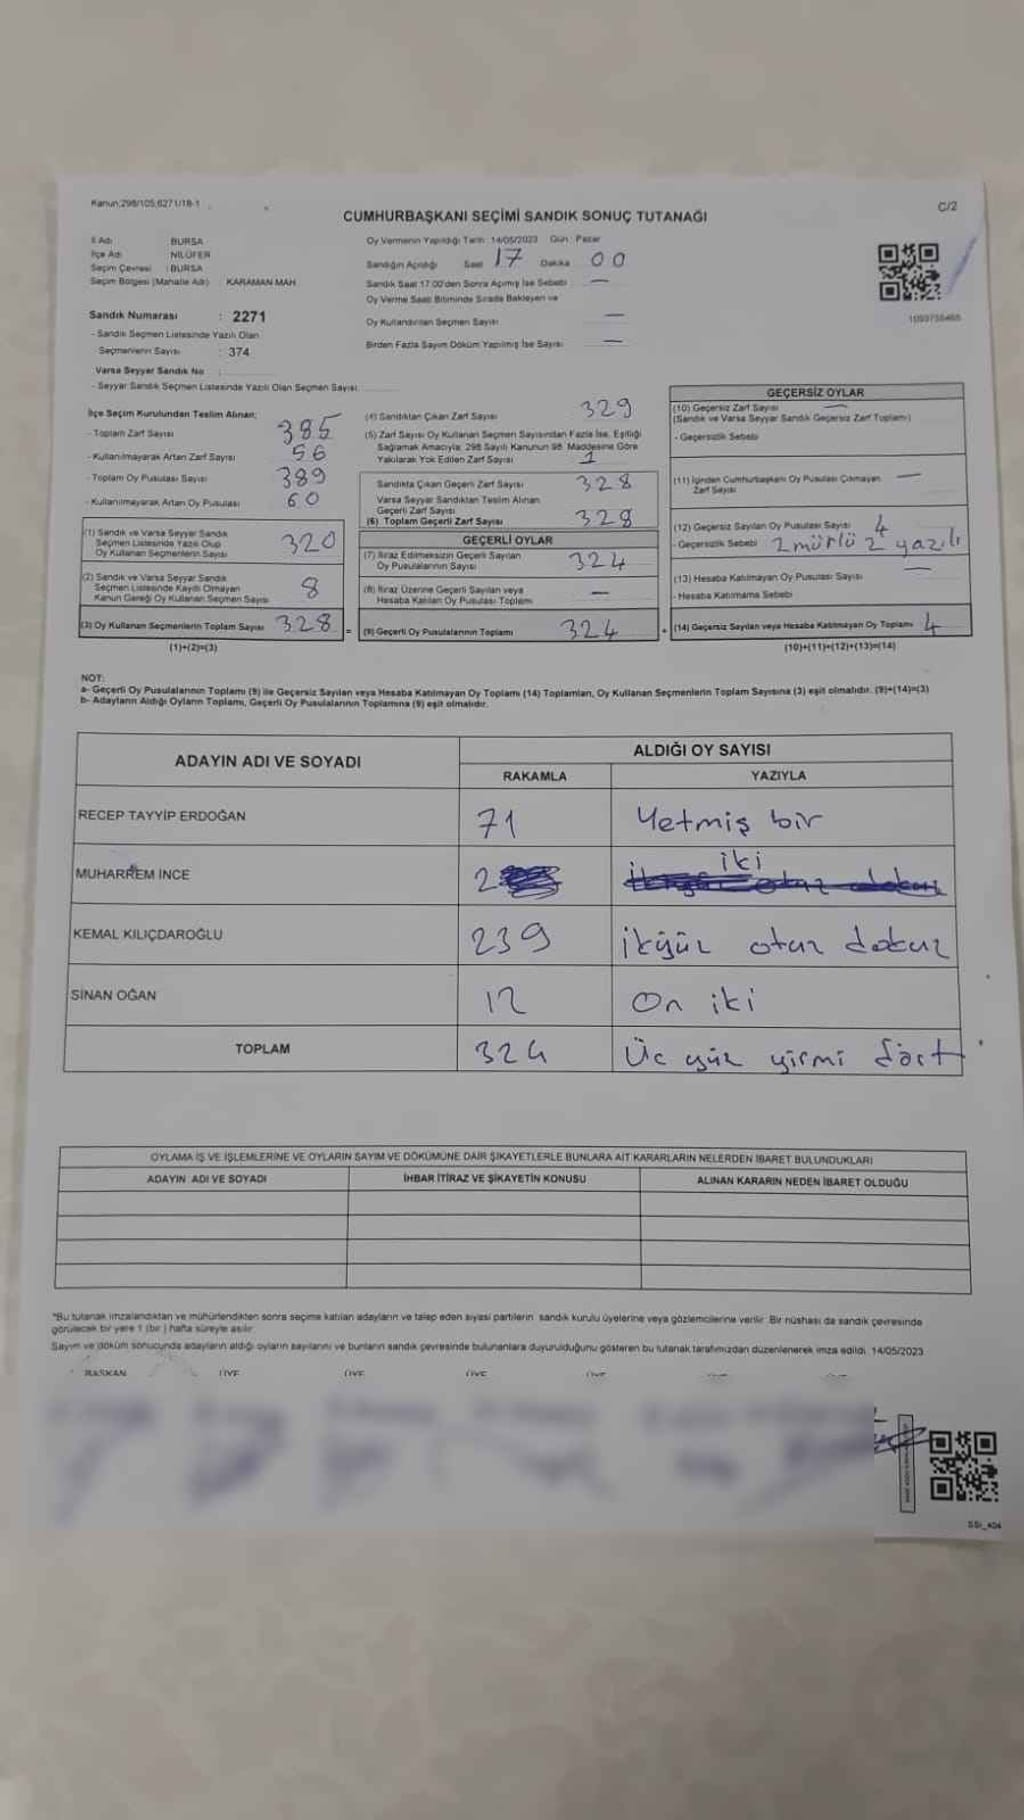 Kanun;298/105,6271/18-1
C/2
CUMHURBAŞKANI SEÇİMİ SANDIK SONUÇ TUTANAĞI
İl Adı BURSA
İlçe Adı NİLÜFER
Seçim Çevresi : BURSA
Seçim Bölgesi (Mahalle Adı) KARAMAN MAH.
Sandık Numarası : 2271
- Sandık Seçmen Listesinde Yazılı Olan
Seçmenlerin Sayısı : 374
Varsa Seyyar Sandık No :
- Seyyar Sandık Seçmen Listesinde Yazılı Olan Seçmen Sayısı
Oy Vermenin Yapıldığı Tarih : 14/05/2023 Gün : Pazar
Sandığın Açıldığı Saat 17 Dakika 00
Sandık Saat 17.00'den Sonra Açılmış İse Sebebi —
Oy Verme Saati Bitiminde Sırada Bekleyen ve
Oy Kullandırılan Seçmen Sayısı —
Birden Fazla Sayım Döküm Yapılmış İse Sayısı —
İlçe Seçim Kurulundan Teslim Alınan;
- Toplam Zarf Sayısı 385
- Kullanılmayarak Artan Zarf Sayısı 56
- Toplam Oy Pusulası Sayısı 389
- Kullanılmayarak Artan Oy Pusulası 60
(1) Sandık ve Varsa Seyyar Sandık
Seçmen Listesinde Yazılı Olup
Oy Kullanan Seçmenlerin Sayısı 320
(2) Sandık ve Varsa Seyyar Sandık
Seçmen Listesinde Kayıtlı Olmayan
Kanun Gereği Oy Kullanan Seçmen Sayısı 8
(3) Oy Kullanan Seçmenlerin Toplam Sayısı 328
(1)+(2)=(3)
(4) Sandıktan Çıkan Zarf Sayısı 329
(5) Zarf Sayısı Oy Kullanan Seçmen Sayısından Fazla İse, Eşitliği
Sağlamak Amacıyla; 298 Sayılı Kanunun 98. Maddesine Göre
Yakılarak Yok Edilen Zarf Sayısı 1
Sandıkta Çıkan Geçerli Zarf Sayısı 328
Varsa Seyyar Sandıktan Teslim Alınan
Geçerli Zarf Sayısı
(6) Toplam Geçerli Zarf Sayısı 328
GEÇERLİ OYLAR
(7) İtiraz Edilmeksizin Geçerli Sayılan
Oy Pusulalarının Sayısı 324
(8) İtiraz Üzerine Geçerli Sayılan veya
Hesaba Katılan Oy Pusulası Toplamı —
= (9) Geçerli Oy Pusulalarının Toplamı 324
GEÇERSİZ OYLAR
(10) Geçersiz Zarf Sayısı —
(Sandık ve Varsa Seyyar Sandık Geçersiz Zarf Toplamı)
- Geçersizlik Sebebi
(11) İçinden Cumhurbaşkanı Oy Pusulası Çıkmayan —
Zarf Sayısı
(12) Geçersiz Sayılan Oy Pusulası Sayısı 4
- Geçersizlik Sebebi 2 mürlü 2 yazılı
(13) Hesaba Katılmayan Oy Pusulası Sayısı —
- Hesaba Katılmama Sebebi
+ (14) Geçersiz Sayılan veya Hesaba Katılmayan Oy Toplamı 4
(10)+(11)+(12)+(13)=(14)
NOT:
a- Geçerli Oy Pusulalarının Toplamı (9) ile Geçersiz Sayılan veya Hesaba Katılmayan Oy Toplamı (14) Toplamları, Oy Kullanan Seçmenlerin Toplam Sayısına (3) eşit olmalıdır. (9)+(14)=(3)
b- Adayların Aldığı Oyların Toplamı, Geçerli Oy Pusulalarının Toplamına (9) eşit olmalıdır.
ADAYIN ADI VE SOYADI
ALDIĞI OY SAYISI
RAKAMLA YAZIYLA
RECEP TAYYİP ERDOĞAN 71 Yetmiş bir
MUHARREM İNCE 2 iki
KEMAL KILIÇDAROĞLU 239 ikiyüz otuz dokuz
SİNAN OĞAN 12 On iki
TOPLAM 324 Üc yüz yirmi dört
OYLAMA İŞ VE İŞLEMLERİNE VE OYLARIN SAYIM VE DÖKÜMÜNE DAİR ŞİKAYETLERLE BUNLARA AİT KARARLARIN NELERDEN İBARET BULUNDUKLARI
ADAYIN ADI VE SOYADI İHBAR İTİRAZ VE ŞİKAYETİN KONUSU ALINAN KARARIN NEDEN İBARET OLDUĞU
*Bu tutanak imzalandıktan ve mühürlendikten sonra seçime katılan adayların ve talep eden siyasi partilerin sandık kurulu üyelerine veya gözlemcilerine verilir. Bir nüshası da sandık çevresinde
görülecek bir yere 1 (bir ) hafta süreyle asılır.
Sayım ve döküm sonucunda adayların aldığı oyların sayılarını ve bunların sandık çevresinde bulunanlara duyurulduğunu gösteren bu tutanak tarafımızdan düzenlenerek imza edildi. 14/05/2023
BAŞKAN ÜYE ÜYE ÜYE